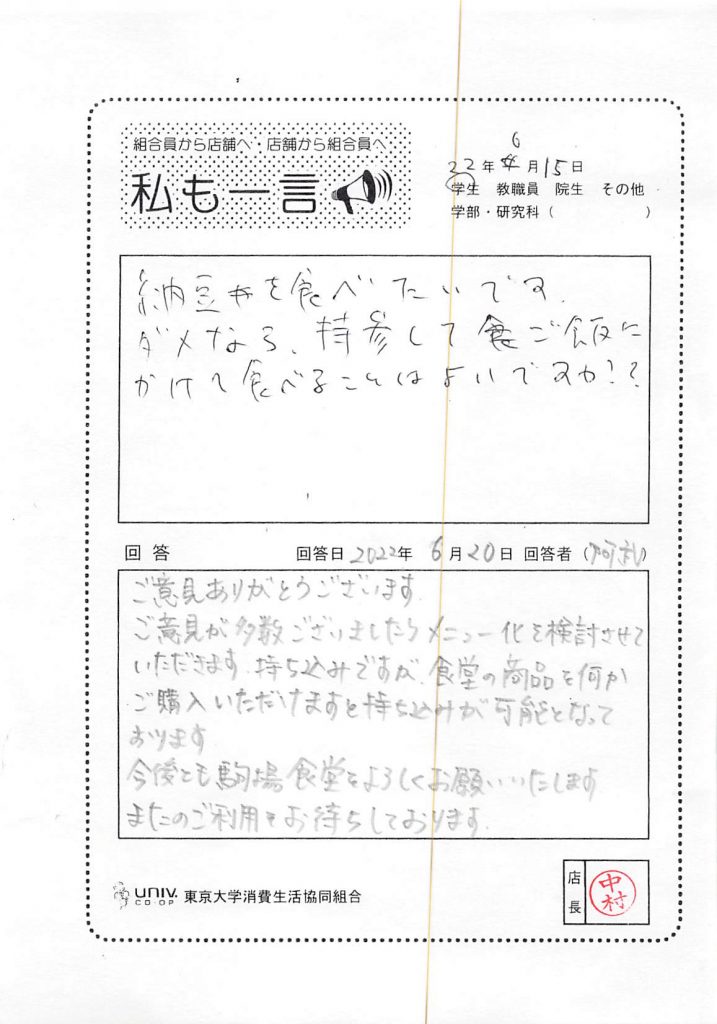 組合員から店舗へ・店舗から組合員へ
私も一言
22年6月15日
学生 教職員 院生 その他
学部・研究科( )
納豆を食べたいです。
ダメなら、持参してご飯に
かけて食べることはよいですか??
回答 回答日 2022年 6月20日 回答者( )
ご意見ありがとうございます。
ご意見が多数ございましたらメニュー化を検討させて
いただきます。持ち込みですが、食堂の商品を何か
ご購入いただけますと持ち込みが可能となって
おります
今後とも駒場食堂をよろしくお願いいたします
またのご利用をお待ちしております。
UNIV. CO-OP 東京大学消費生活協同組合
店長 中村